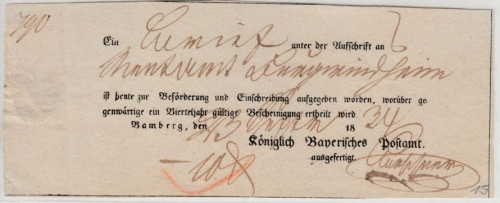 790
Ein Brief unter der Aufschrift an
Rentamt Burgwindheim
ist heute zur Beförderung und Einschreibung aufgegeben worden, worüber ge
genwärtige ein Vierteljahr gültige Bescheinigung ertheilt wird.
Bamberg, den 18 34
Königlich Bayerisches Postamt.
ausgefertigt.
15